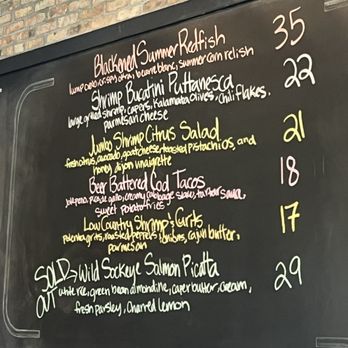 Blackened Summer Redfish 35
lump crab, crispy okra, beurre blanc, summer corn relish
Shrimp Bucatini Puttanesca 22
large grilled shrimp, capers, Kalamata olives, chili flakes,
parmesan cheese
Jumbo Shrimp Citrus Salad 21
fresh citrus, avocado, goat cheese, toasted pistachios, and
honey dijon vinaigrette
Beer Battered Cod Tacos 18
jalapeno, pico de gallo, creamy cabbage slaw, tartar sauce,
sweet potato fries
Low Country Shrimp & Grits 17
polenta grits, roasted peppers & onions, cajun butter,
parmesan
SOLD OUT → Wild Sockeye Salmon Picatta 29
white rice, green bean almondine, caper butter, cream,
fresh parsley, charred lemon